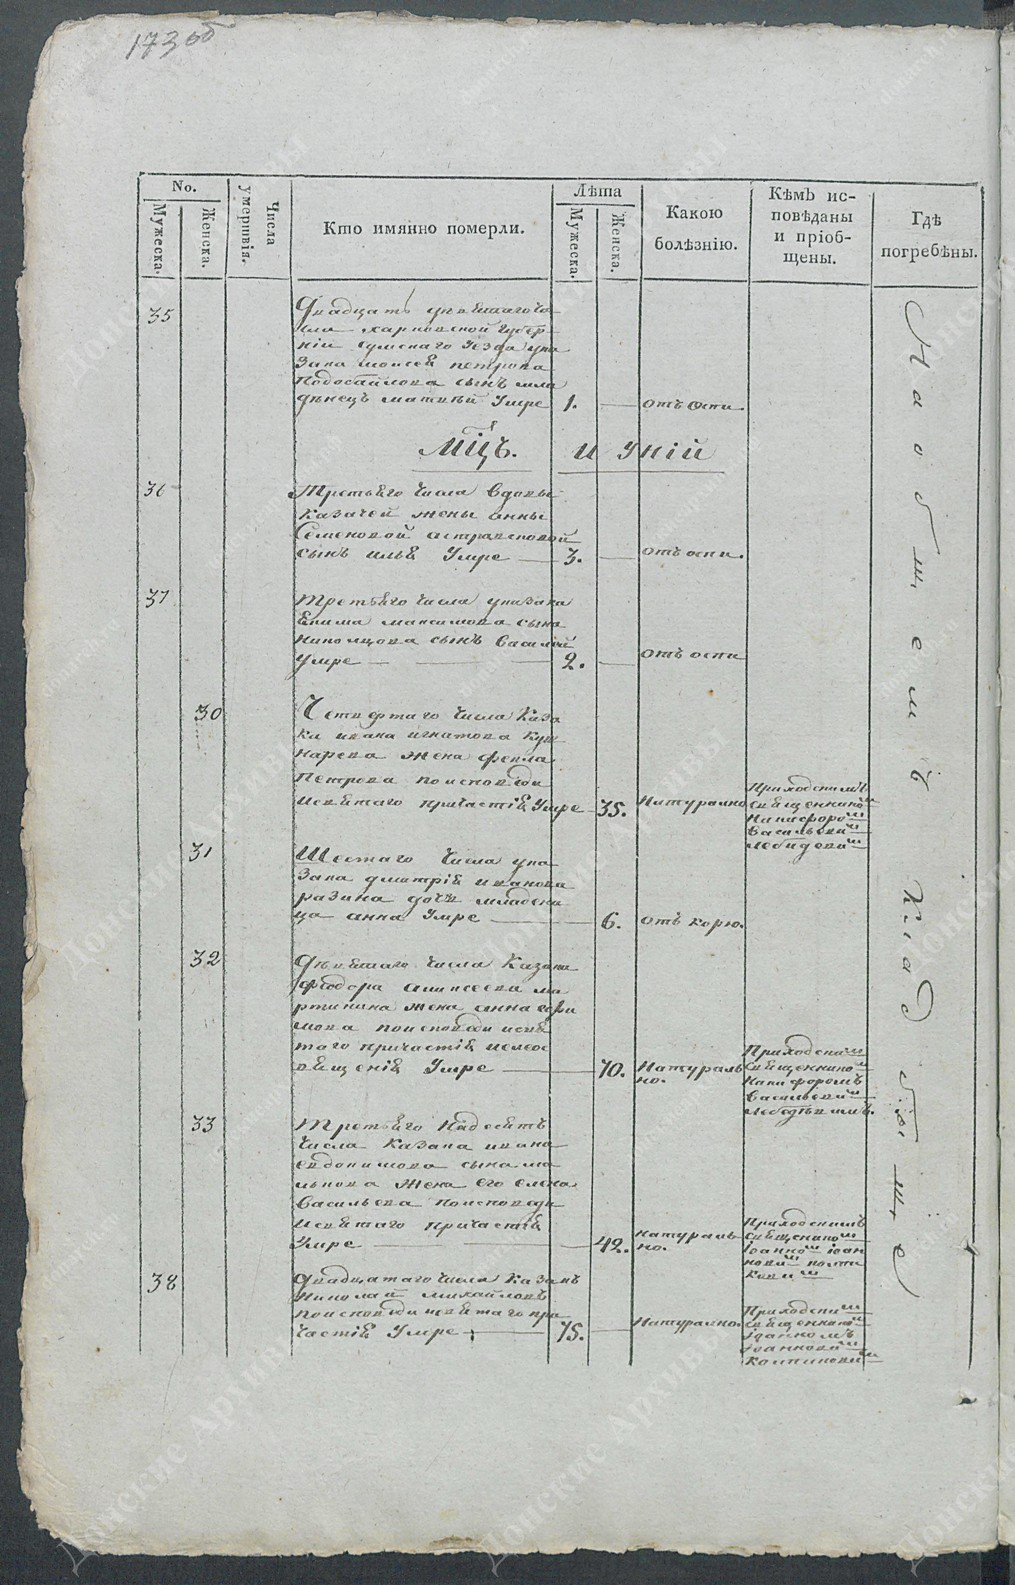 173 об
No.
Мужеска.
Женска.
Числа умершвія.
Кто имянно померли.
Лѣта
Мужеска.
Женска.
Какою
болѣзнію.
Кѣмъ ис-
повѣданы
и пріоб-
щены.
Гдѣ
погребѣны.
35
Двадцать девятаго чи
сла харковской губер
ніи сумскаго уезда
моисея петрова
сынъ мла
дѣнецъ матвѣй умре 1. отъ оспи
Мцъ. Иуній
36
Третьяго числа вдовы
казачей жены анны
Семеновой
сынъ илья умре 3. отъ оспи.
37
третьяго числа казака
Екима максимова сына
сынъ василей
умре 2. отъ оспи
30
Четвертаго числа каза
ка ивана игнатова куш
нарева жена фекла
Петрова поисповѣди
исвятаго причастія умре 35. Натурално
Приходскимъ
священникомъ
Никифоромъ
Васильевимъ
лебидевимъ
31
Шестаго числа
дмитрія иванова
разина дочь младени
ца анна умре 6. отъ корю.
32
Девятаго числа казака
феодора алексеева ма
ртинина жена анна ефи
мова поисповѣди исвя
таго причастія иелеос
вященія умре 70. Натураль
но.
Приходскимъ
священникомъ
Никифоромъ
Васильевимъ
Лебедевимъ.
33
третьяго надесять
числа казака ивана
евдокимова сына ма
лькова жена его елена
васильева поисповеди
исвятаго причастія
умре 42. натураль
но.
Приходскимъ
священикомъ
іоанномъ іоан
новимъ
38
двадцатаго числа казакъ
николай михайловъ
поисповѣди исвятаго при
частія умре 75. Натурално.
Приходскимъ
священникомъ
іоанномъ
іоанновимъ
На общемъ кладбище